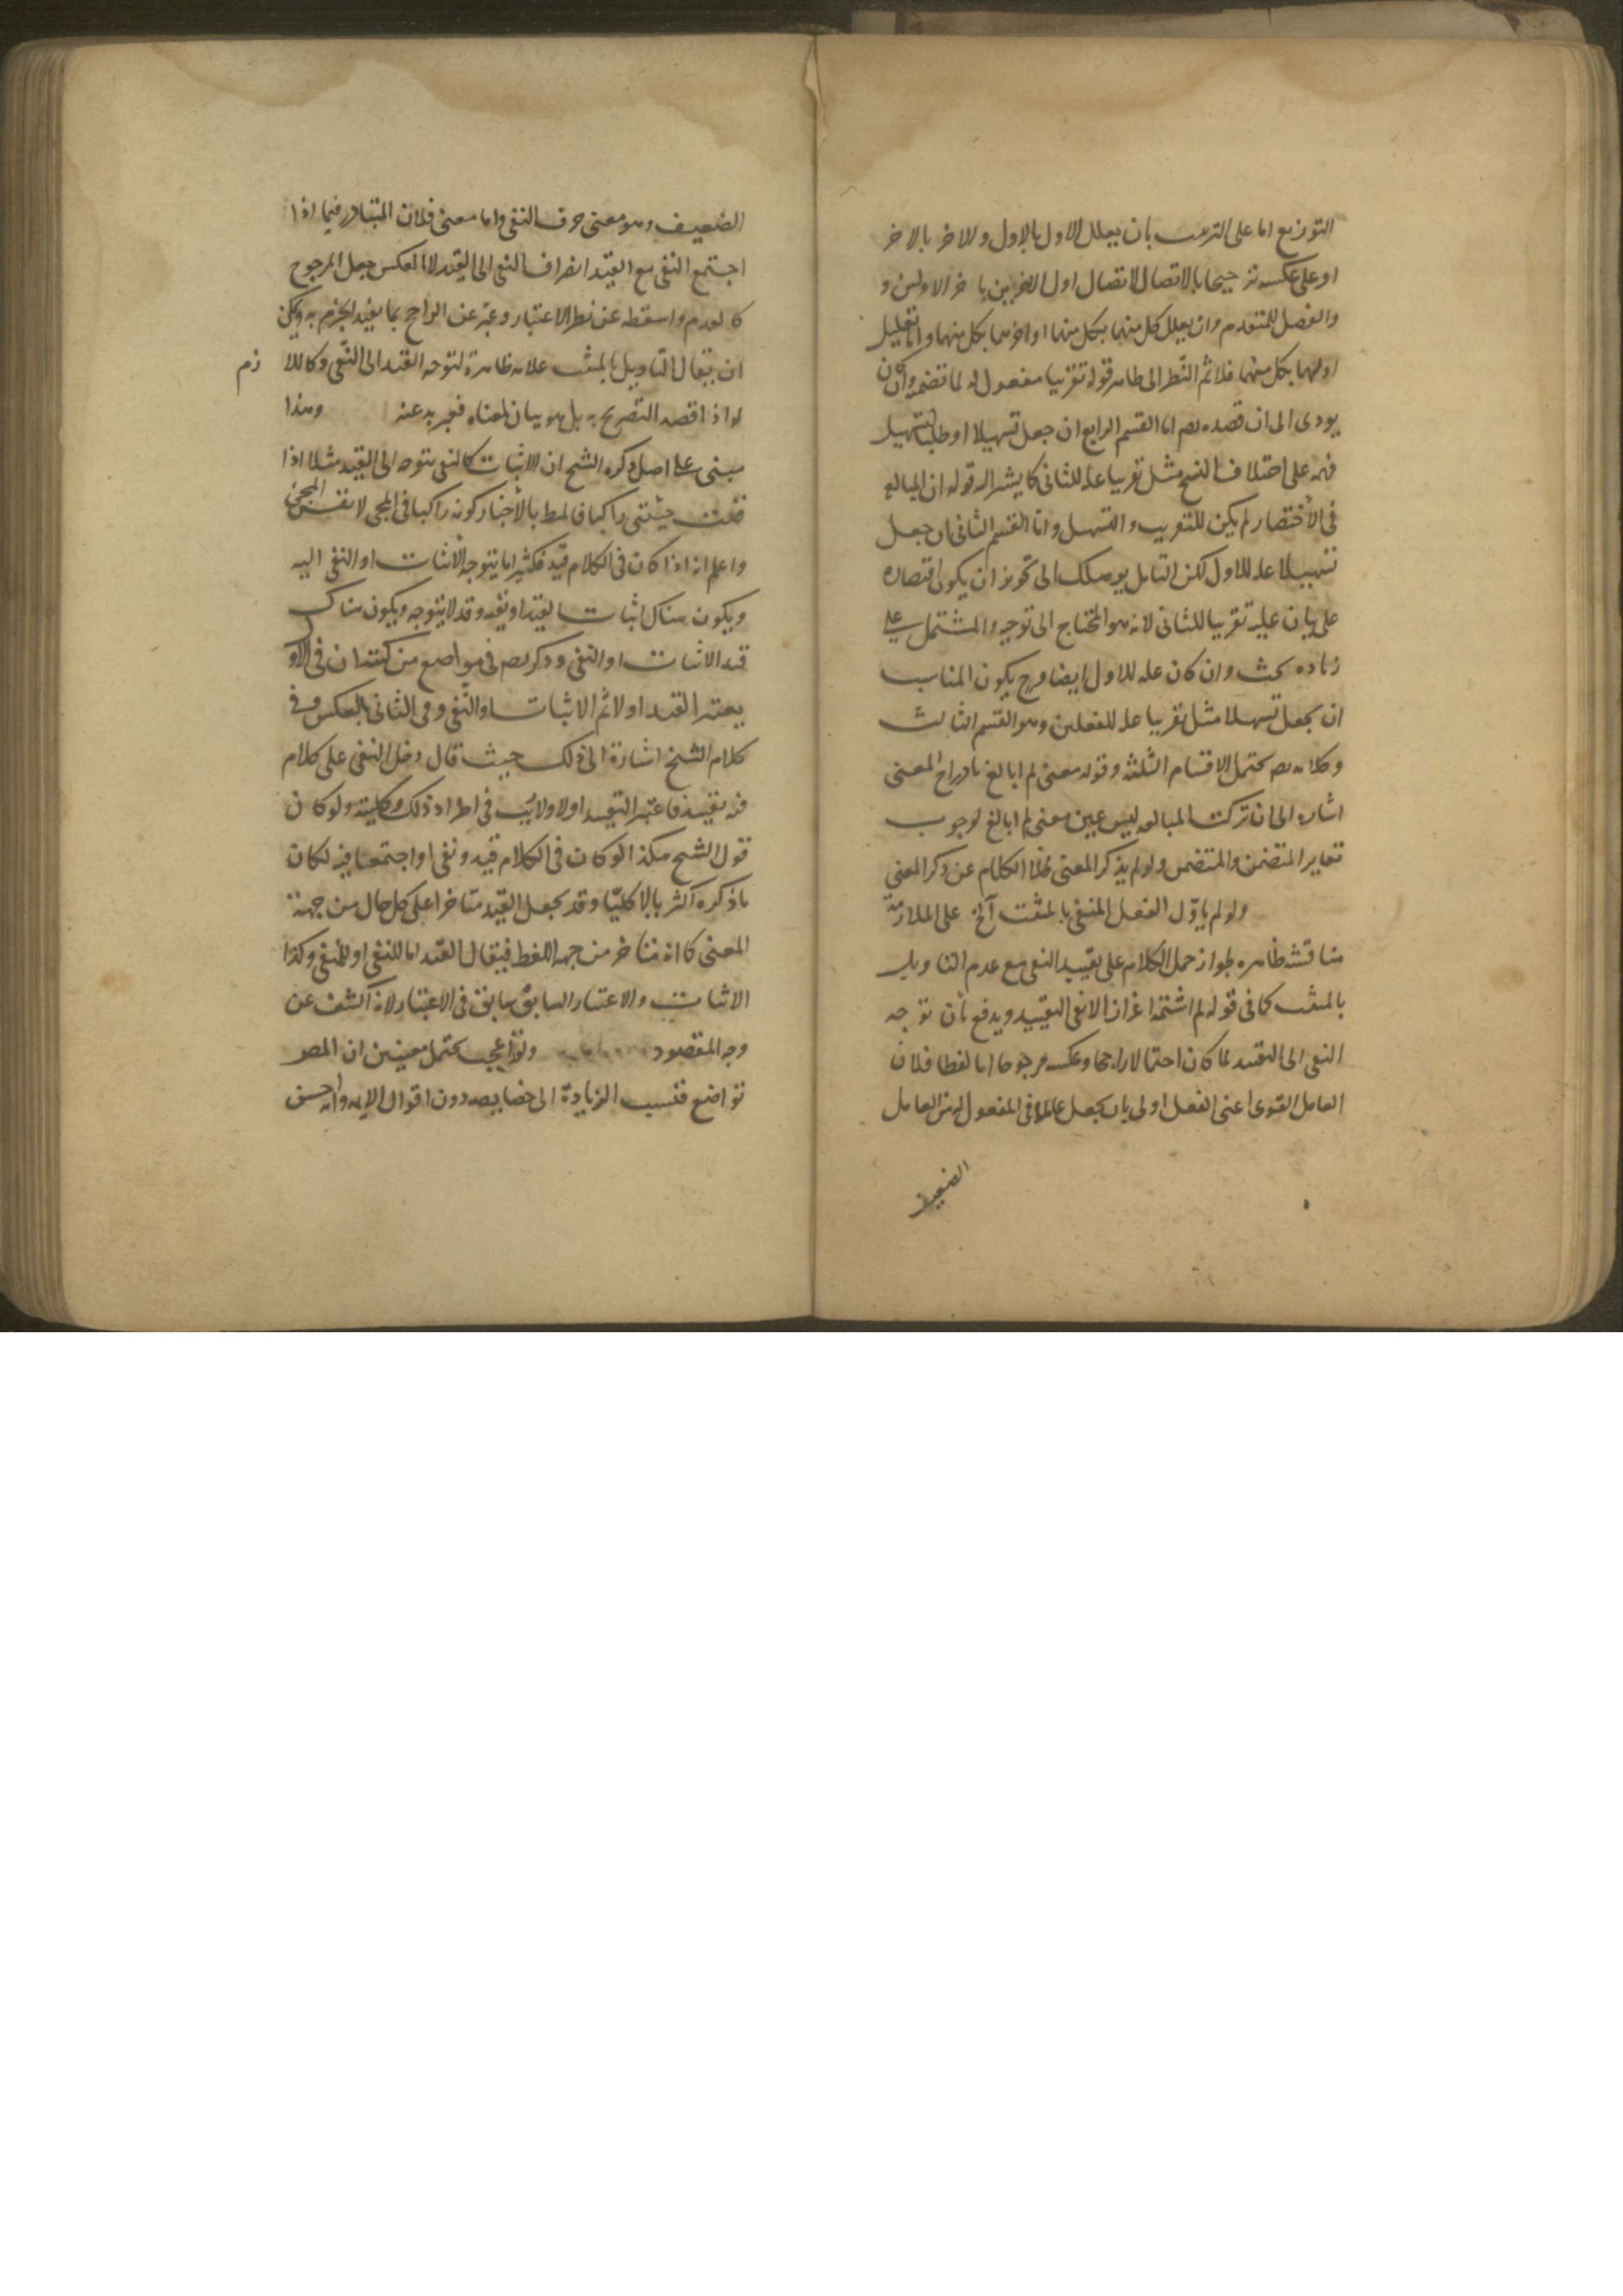 التوزيع اما على الترتيب بان يعلل الاول بالاول والاخر بالاخر
او على عكسه ترجيحا بالاتصال لاتصال اول الاخريين باخر الاولين و
والفضل للمتقدم وان يعلل كل منهما بكل منهما او اخرهما بكل منهما واما تعليل
اولهما بكل منهما فلا ثم النظر الى ظاهر قوله تقريبا مفعول له لما تضمنه وان كان
يودى الى ان قصده بصم اما القسم الرابع ان جعل تسهيلا او طلبا لتسهيل
فهمه على اختلاف النسخ مثل تقريبا علة للثانى كما يشير اليه قوله ان المبالغة
فى الاختصار لم يكن للتقريب والتسهيل واما القسم الثانى ان جعل
تسهيلا علة للاول لكن التامل يوصلك الى تجويز ان يكون اقتصاره
على بيان علية تقريبا للثانى لانه هو المحتاج الى توجيه والمشتمل على
زياده بحث وان كان علة للاول ايضا وح يكون المناسب
ان يجعل تسهيلا مثل تقريبا علة للفعلين وهو القسم الثالث
وكلامه بصم يحتمل الاقسام الثلثة وقوله معنى لم ابالغ بادراج المعنى
اشاره الى ان تركت المبالغه ليس عين معنى لم ابالغ لوجوب
تغاير المتضمن والمتضمن ولو لم يذكر المعنى لخلا الكلام عن ذكر المعنى
ولو لم ياول الفعل المنفى بالمثبت آلخ على الملازمة
مناقشه ظاهره لجواز حمل الكلام على تقييد النفى مع عدم التاويل
بالمثبت كما فى قوله لم اشتمه اغراز الا نفى التقييد ويدفع بان توجه
النفى الى التقييد لما كان احتمالا راجحا وعكسه مرجوحا اما لفظا فلان
العامل القوى اعنى الفعل اولى بان يجعل عاملا فى المفعول له من العامل
الضعيف
الضعيف وهو معنى حرف النفى واما معنى فلان المتبادر فيما اذا
اجتمع النفى مع القيد انصراف النفى الى القيد لا العكس جعل المرجوح
كالعدم واسقطه عن نظر الاعتبار وعبر عن الراجح بما يفيد الجزم به ويمكن
ان يقال التاويل بالمثبت علامة ظاهرة لتوجه القيد الى النفى وكاللا زم
لو اذا قصد التصريح به بل هو بيان لمعناه فعبر به عنه وهذا
مبنى على اصل ذكره الشيخ ان الاثبات كالنفى يتوجه الى القيد مثلا اذا
قلت جئتنى راكبا فالمط بالاخبار كونه راكبا فى المجى لا نفس المجئ
واعلم انه اذا كان فى الكلام قيد فكثيرا ما يتوجه الاثبات او النفى اليه
ويكون هناك اثبات القيد او نفيه وقد لا يتوجه ويكون هناك
قيد الاثبات او النفى وذكر بصم فى مواضع من كتبه ان فى الاول
يعتبر القيد اولا ثم الاثبات او النفى وفى الثانى بالعكس وفى
كلام الشيخ اشارة الى ذلك حيث قال دخل النفى على كلام
فيه تقييد فاعتبر التقييد اولا ولا ريب فى اطراد ذلك وكليته ولو كان
قول الشيخ هكذا لو كان فى الكلام قيد ونفى او اجتمعا فيه لكان
ما ذكره اكثريا لا كليا وقد يجعل القيد متاخرا على كل حال من جهة
المعنى كما انه متاخر من جهه اللفظ فيقال القيد اما للنفى او للمنفى وكذا
الاثبات والاعتبار السابق سابق فى الاعتبار لانه اكشف عن
وجه المقصود ولقد اعجب يحتمل معنيين ان المصر
تواضع فنسب الزيادة الى خصايصه دون اقوال الايمه وانه احسن